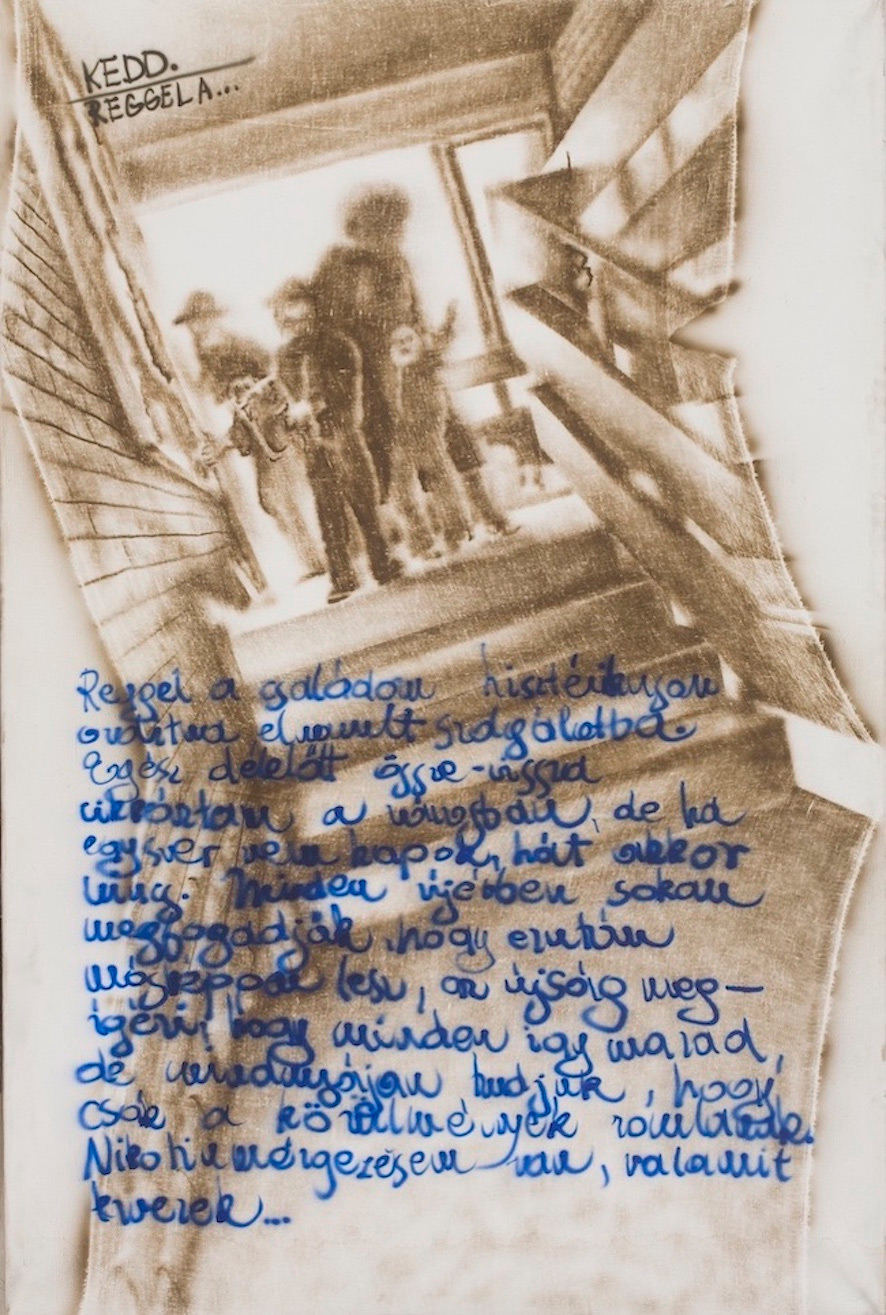 KEDD.
REGGEL A...
Reggel a családom hisztérikusan
ordítva elvonult szolgálatba.
Egész délelőtt össze-vissza
cikáztam a városban, de ha
egyszer nem kapok, hát akkor
nincs. Minden újévben sokan
megfogadják, hogy ezután
másképpen lesz, az újság meg-
ígéri, hogy minden így marad,
de mindnyájan tudjuk, hogy
csak a körülmények romlanak.
Nikotinmérgezésem van, valamit
tervezek...